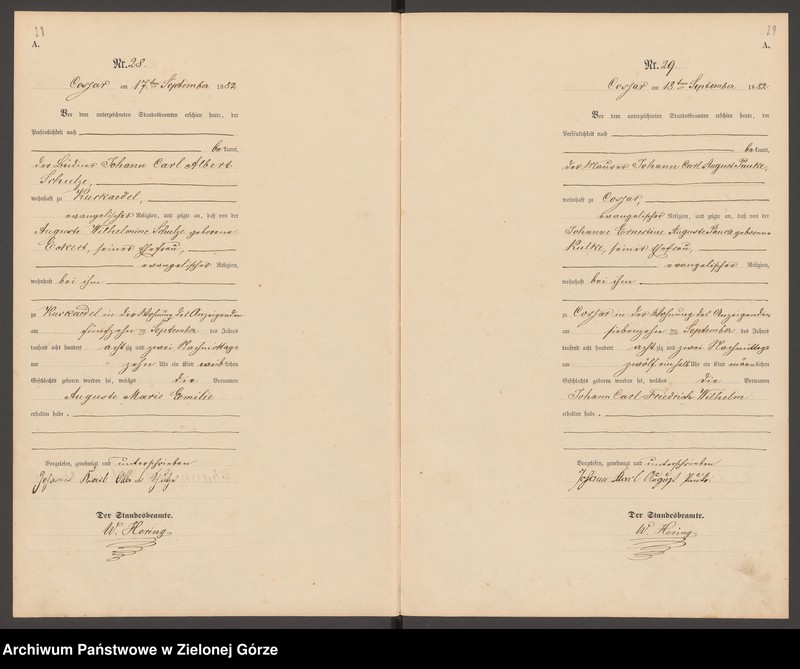 A.
Nr. 28.
Cossar am 17ten September 1882
Vor dem unterzeichneten Standesbeamten erschien heute, der
Persönlichkeit nach
bekannt,
der Büdner Johann Carl Albert
Schulze,
wohnhaft zu Kurkaedel,
evangelischer Religion, und zeigte an, daß von der
Auguste Wilhelmine Schulze geborene
Eckert, seiner Ehefrau,
evangelischer Religion,
wohnhaft bei ihm
zu Kurkaedel in der Wohnung des Anzeigenden
am fünfzehn ten September des Jahres
tausend acht hundert achtzig und zwei Nachmittags
um zehn Uhr ein Kind weiblichen
Geschlechts geboren worden sei, welches die Vornamen
Auguste Marie Emilie
erhalten habe.
Vorgelesen, genehmigt und unterschrieben
Johann Karl
Der Standesbeamte.
W. Hering
29
A.
Nr. 29.
Cossar am 18ten September 1882
Vor dem unterzeichneten Standesbeamten erschien heute, der
Persönlichkeit nach
bekannt,
der Maurer Johann Carl August Paucke,
wohnhaft zu Cossar,
evangelischer Religion, und zeigte an, daß von der
Johanne Ernestine Auguste Paucke geborene
Kulke, seiner Ehefrau,
evangelischer Religion,
wohnhaft bei ihm
zu Cossar in der Wohnung des Anzeigenden
am siebenzehn ten September des Jahres
tausend acht hundert achtzig und zwei Nachmittags
um zwölf einhalb Uhr ein Kind männlichen
Geschlechts geboren worden sei, welches die Vornamen
Johann Carl Friedrich Wilhelm
erhalten habe.
Vorgelesen, genehmigt und unterschrieben
Johann Karl August
Der Standesbeamte.
W. Hering
Archiwum Państwowe w Zielonej Górze